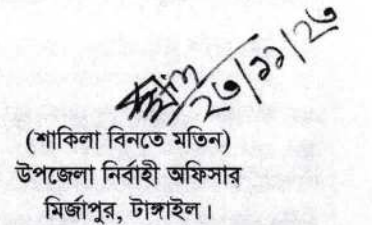 ২৩/১১/২৩
(শাকিলা বিনতে মতিন)
উপজেলা নির্বাহী অফিসার
মির্জাপুর, টাঙ্গাইল।